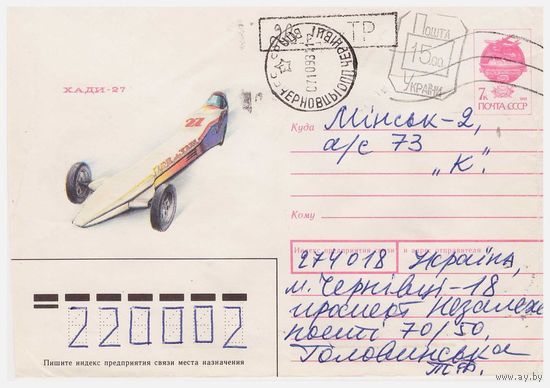 ХАДИ-27
22
ТР
ПОШТА
15.00
УКРАЇНИ
7к
ПОЧТА СССР
Куда Мінськ-2,
а/с 73
„К".
Кому
Индекс предприятия связи и адрес отправителя
274018 Україна,
м. Чернівці-18
проспект Незалеж
ності 70/50,
Головинська
Т.Ф.
220002
Пишите индекс предприятия связи места назначения
www.ay.by